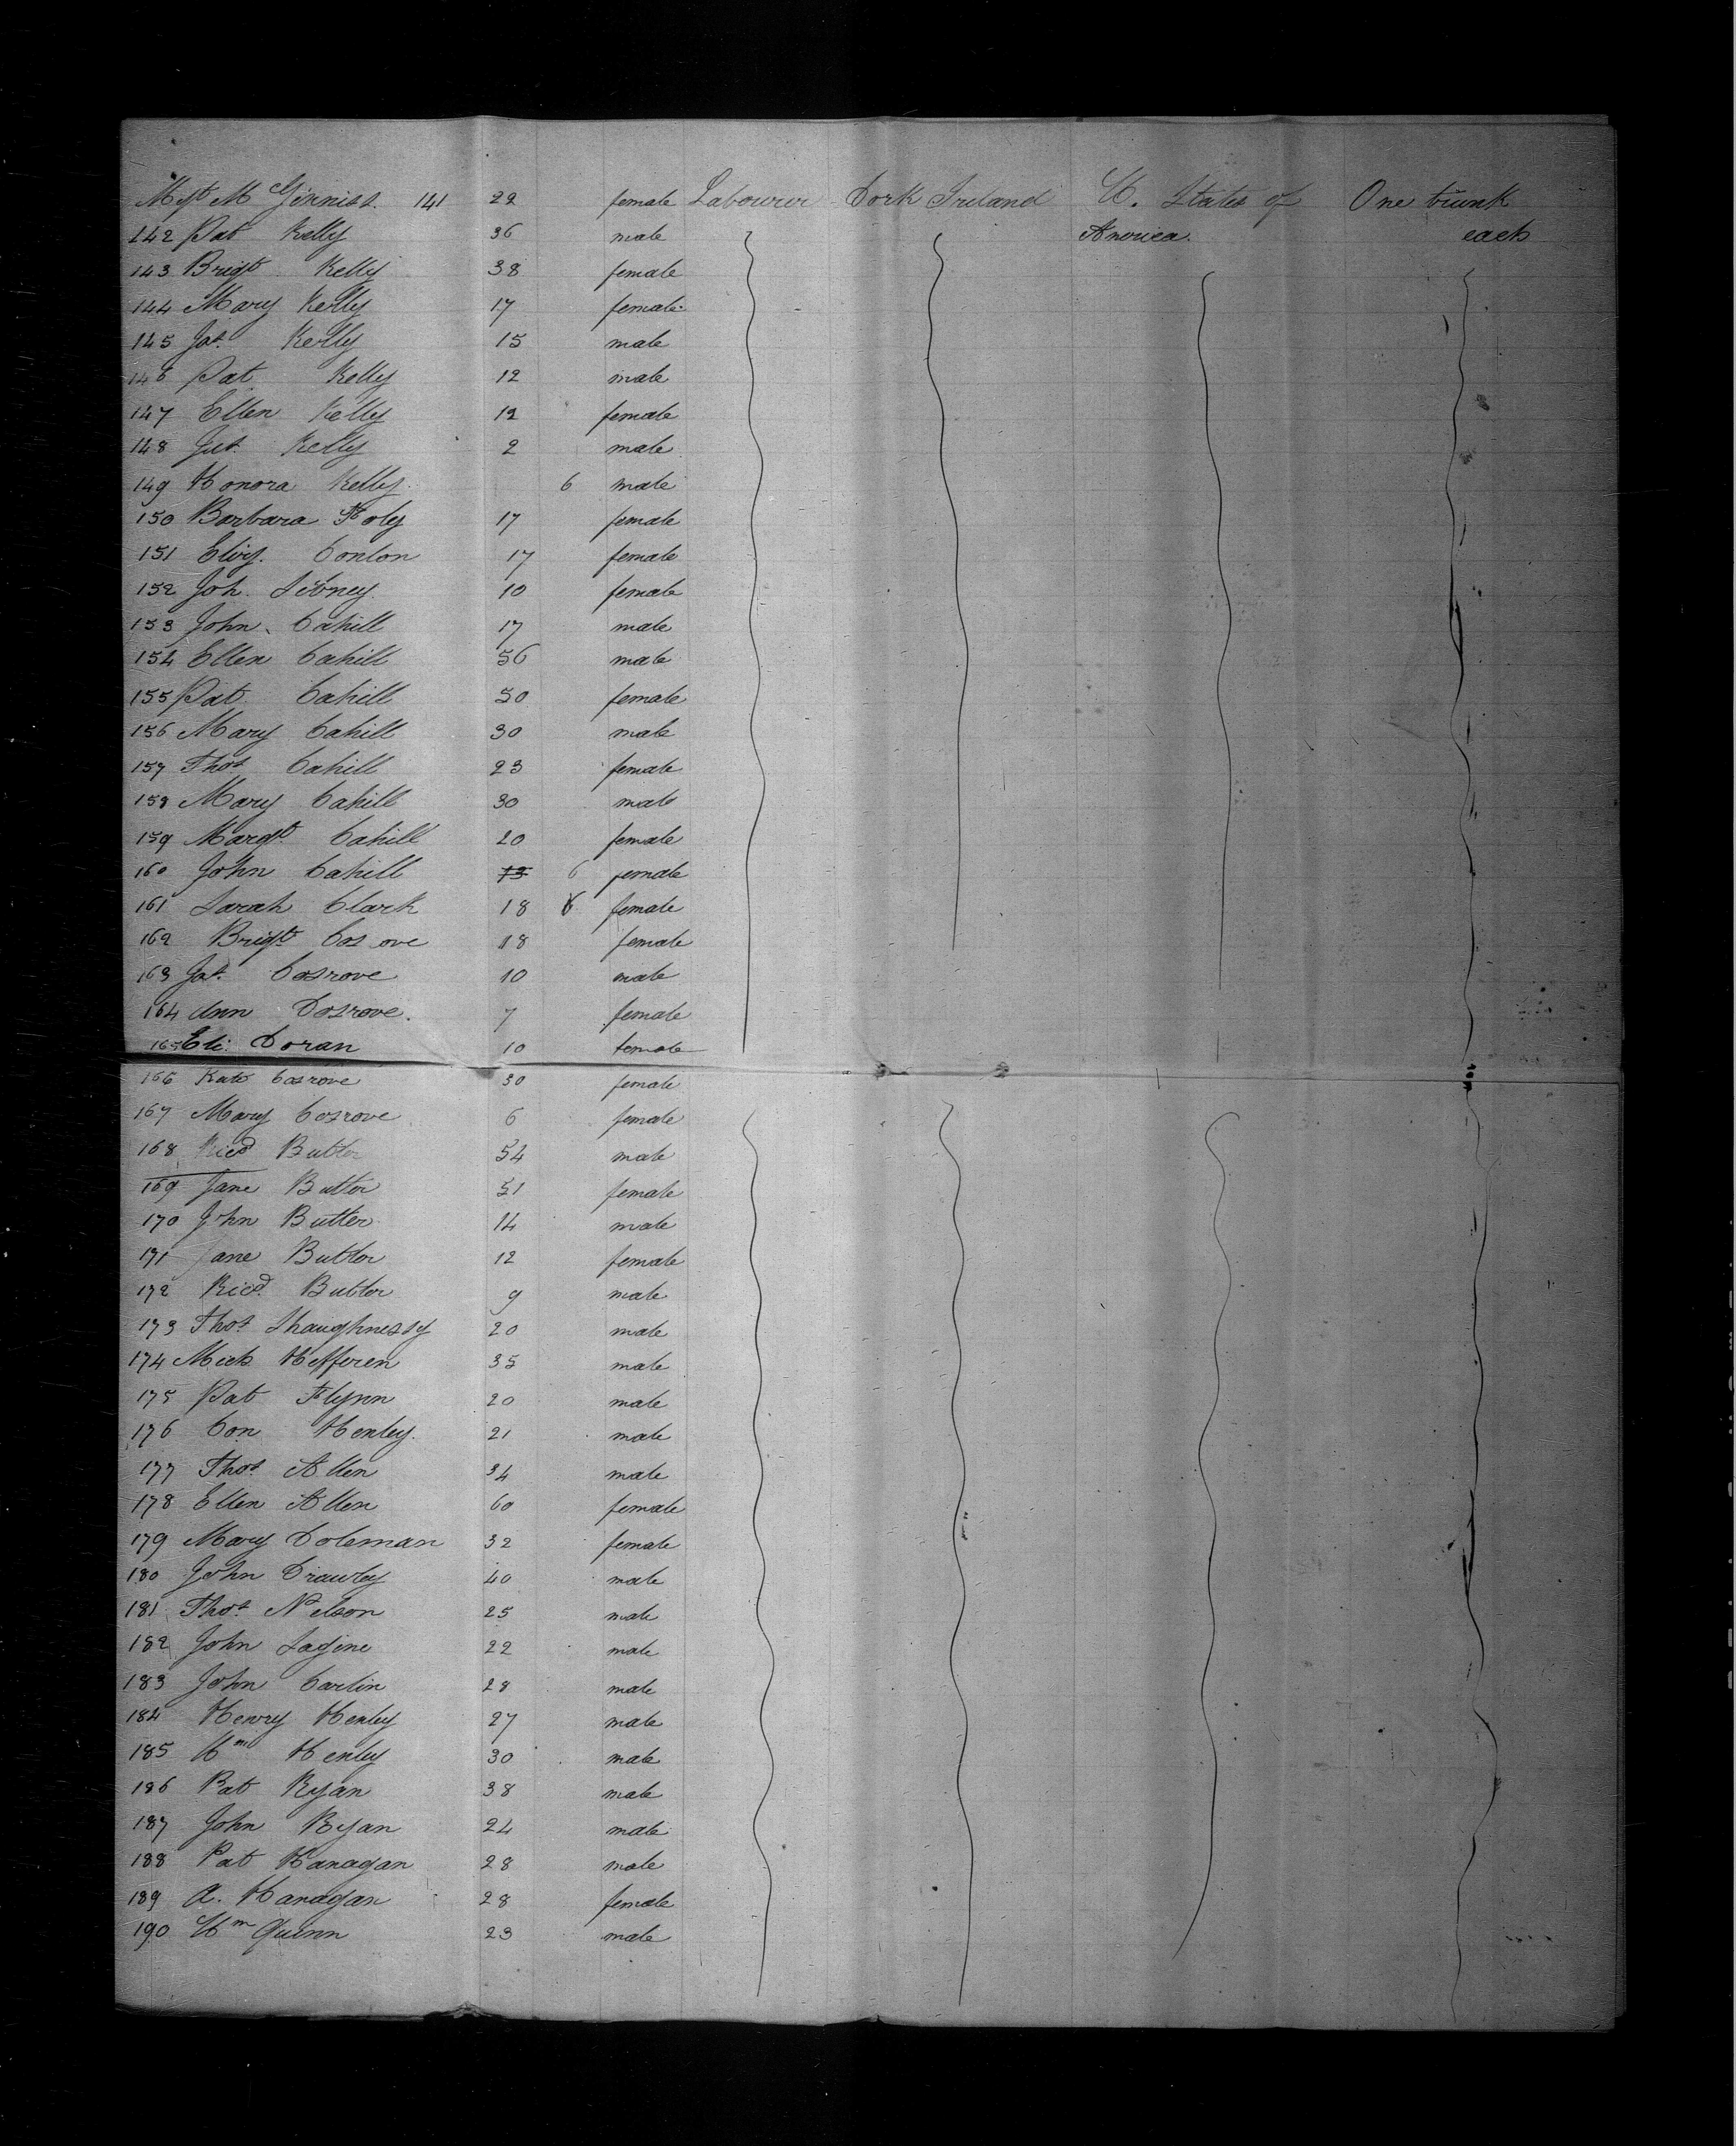 Mgt McGinniss. 141 22 female Labourer Cork Ireland U. States of One trunk
142 Pat Kelly 36 male America. each
143 Brigt Kelly 38 female
144 Mary Kelly 17 female
145 Jas. Kelly 15 male
146 Pat. Kelly 12 male
147 Ellen Kelly 12 female
148 Kelly 2 male
149 Honora Kelly. 6 male
150 Barbara Foley 17 female
151 Eliz. Conlon 17 female
152 Joh. Sibney 10 female
153 John. Cahill 17 male
154 Ellen Cahill 56 male
155 Pat. Cahill 50 female
156 Mary Cahill 30 male
157 Thos Cahill 23 female
158 Mary Cahill 30 male
159 Margt. Cahill 20 female
160 John Cahill 13 6 female
161 Sarah Clark 18 6 female
162 Brigt Cos ove 18 female
163 Jas. Cosrove 10 male
164 Ann Cosrove. 7 female
165 Eli. Doran 10 female
166 Kate Cosrove 30 female
167 Mary Cosrove 6 female
168 Ricd Butler 54 male
169 Jane Butler 51 female
170 John Butler 14 male
171 Jane Butler 12 female
172 Ricd Butler 9 male
173 Thos. Shaughnessy 20 male
174 Mick Hefferen 35 male
175 Pat Flynn 20 male
176 Con Henley. 21 male
177 Thos. Allen 34 male
178 Ellen Allen 60 female
179 Mary Coleman 32 female
180 John Crawley 40 male
181 Thos. Nelson 25 male
182 John Lagine 22 male
183 John Carlin 28 male
184 Henry Henley 27 male
185 Wm Henley 30 male
186 Pat Ryan 38 male
187 John Ryan 24 male
188 Pat Hanagan 28 male
189 A. Hanagan 28 female
190 Wm Quinn 23 male